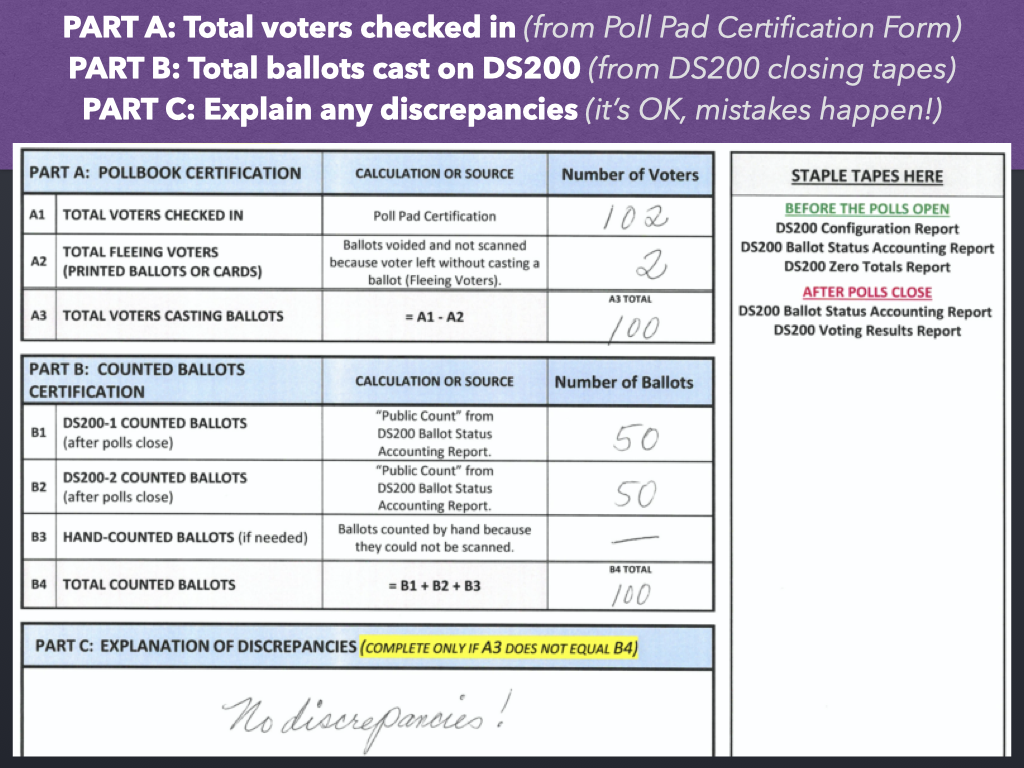 PART A: Total voters checked in (from Poll Pad Certification Form)
PART B: Total ballots cast on DS200 (from DS200 closing tapes)
PART C: Explain any discrepancies (it's OK, mistakes happen!)
PART A: POLLBOOK CERTIFICATION
CALCULATION OR SOURCE
Number of Voters
A1
TOTAL VOTERS CHECKED IN
Poll Pad Certification
102
A2
TOTAL FLEEING VOTERS
(PRINTED BALLOTS OR CARDS)
Ballots voided and not scanned
because voter left without casting a
ballot (Fleeing Voters).
2
A3
TOTAL VOTERS CASTING BALLOTS
= A1 - A2
A3 TOTAL
100
PART B: COUNTED BALLOTS
CERTIFICATION
CALCULATION OR SOURCE
Number of Ballots
B1
DS200-1 COUNTED BALLOTS
(after polls close)
"Public Count" from
DS200 Ballot Status
Accounting Report.
50
B2
DS200-2 COUNTED BALLOTS
(after polls close)
"Public Count" from
DS200 Ballot Status
Accounting Report.
50
B3
HAND-COUNTED BALLOTS (if needed)
Ballots counted by hand because
they could not be scanned.
—
B4
TOTAL COUNTED BALLOTS
= B1 + B2 + B3
B4 TOTAL
100
PART C: EXPLANATION OF DISCREPANCIES (COMPLETE ONLY IF A3 DOES NOT EQUAL B4)
No discrepancies!
STAPLE TAPES HERE
BEFORE THE POLLS OPEN
DS200 Configuration Report
DS200 Ballot Status Accounting Report
DS200 Zero Totals Report
AFTER POLLS CLOSE
DS200 Ballot Status Accounting Report
DS200 Voting Results Report